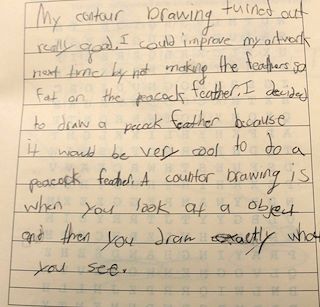 My contour brawing tuined out
really good. I could improve my artwork
next time by not making the feathers so
fat on the peacock feather. I decided
to draw a pecock feather because
it would be very cool to do a
peacock feather. A countor brawing is
when you look at a object
and then you draw exactly what
you see.